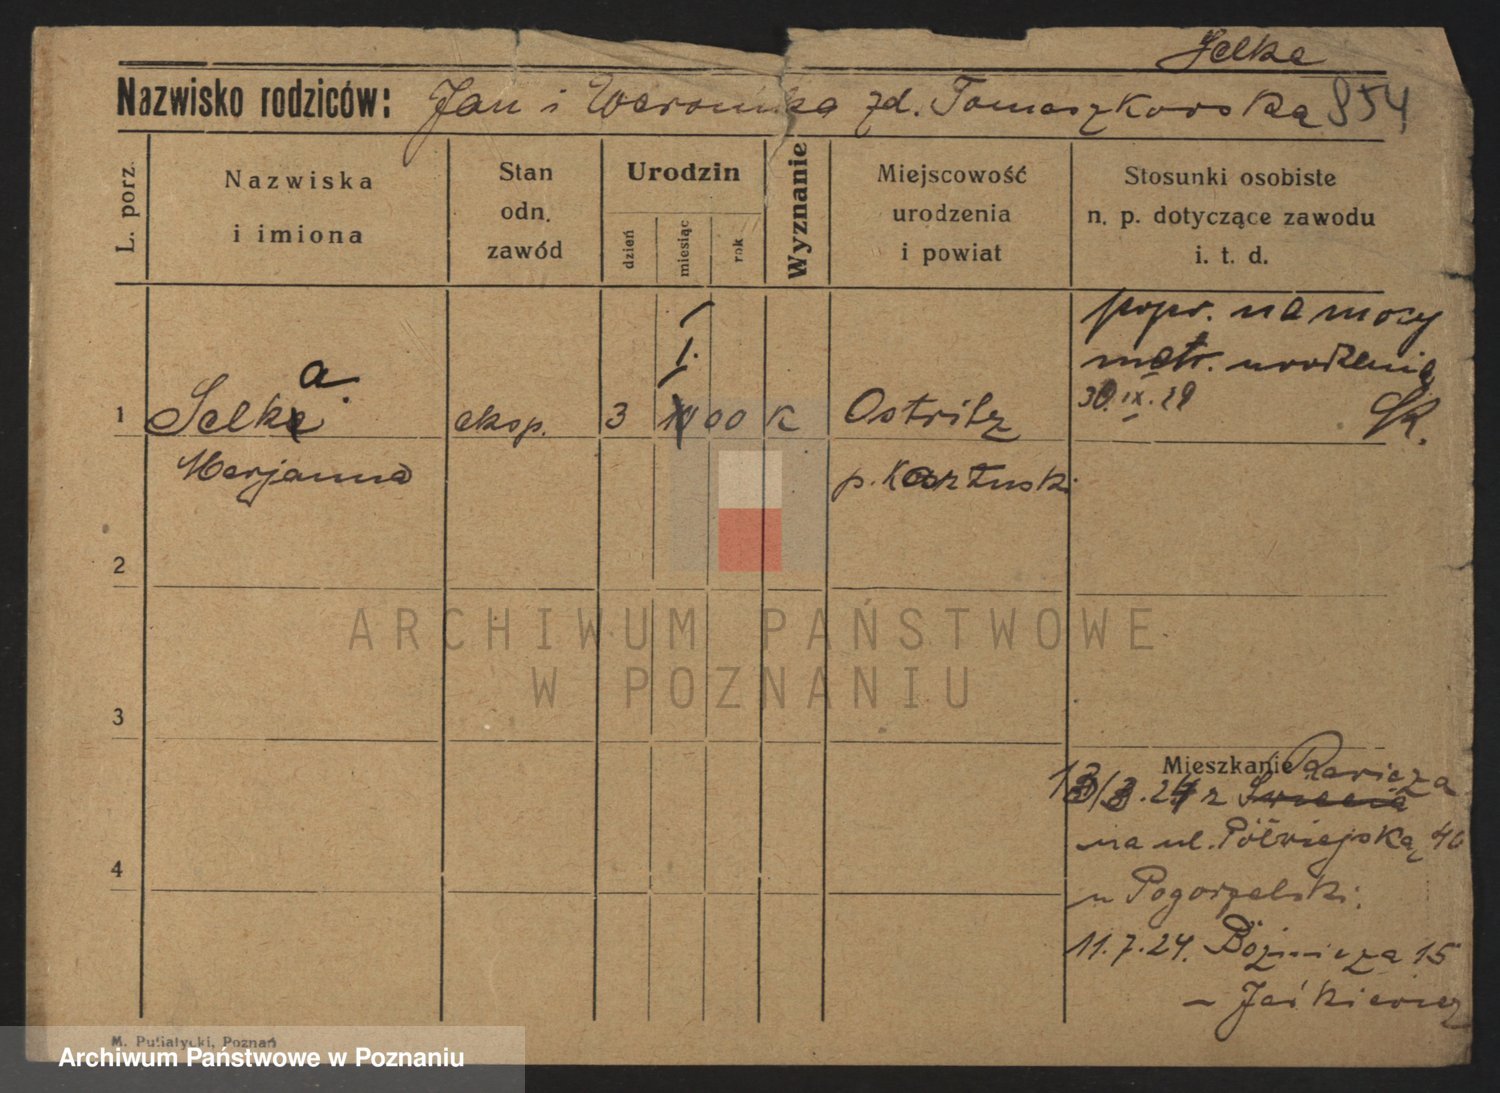 Selke
Nazwisko rodziców: Jan i Weronika zd. Tomaszkorska 854
L. porz.
Nazwiska
i imiona
Stan
odn.
zawód
Urodzin
dzień
miesiąc
rok
Wyznanie
Miejscowość
urodzenia
i powiat
Stosunki osobiste
n. p. dotyczące zawodu
i. t. d.
popr. na mocy
metr. urodzenia
30.IX.29
1 Selke a. eksp. 3 I. 00 K Ostritz
Marjanna p. Kartuski
2
3
4
Mieszkanie Rawicza
13/3.24 z
na ul. Półwiejską 40
u Pogorzelski.
11.7.24. Bóżnicza 15
– Jaśkiewicz
M. Putiatycki, Poznań
ARCHIWUM PAŃSTWOWE
W POZNANIU
Archiwum Państwowe w Poznaniu